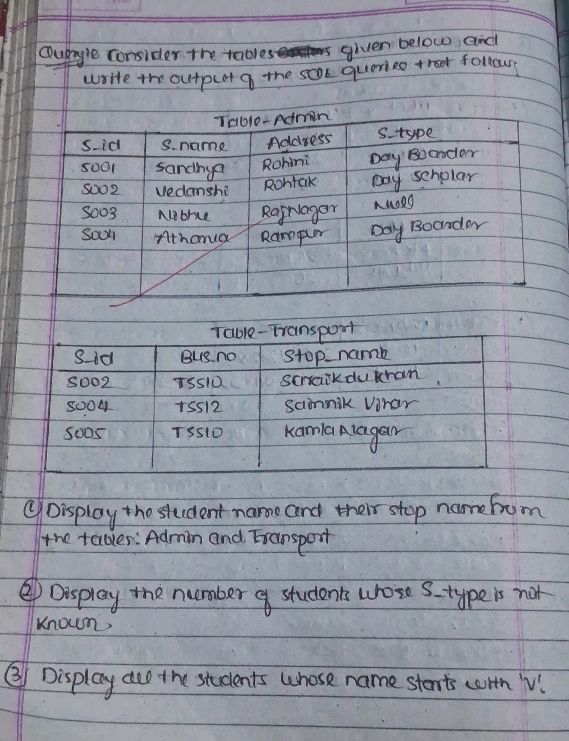 consider the tables given below and
write the output of the queries that follow:
Table-Admin
S_id S_name Address S_type
S001 Sandhya Rohini Day Boarder
S002 Vedanshi Rohtak Day Scholar
S003 Nibhu RajNagar
S004 Atharva Rampur Day Boarder
Table-Transport
S_id Bus_no Stop_name
S002 TSS10
S004 TSS12 Sainnik Vihar
S005 TSS10 Kamla Nagar
① Display the student name and their stop name from
the tables: Admin and Transport
② Display the number of students whose S_type is not
known.
③ Display all the students whose name starts with 'V'.